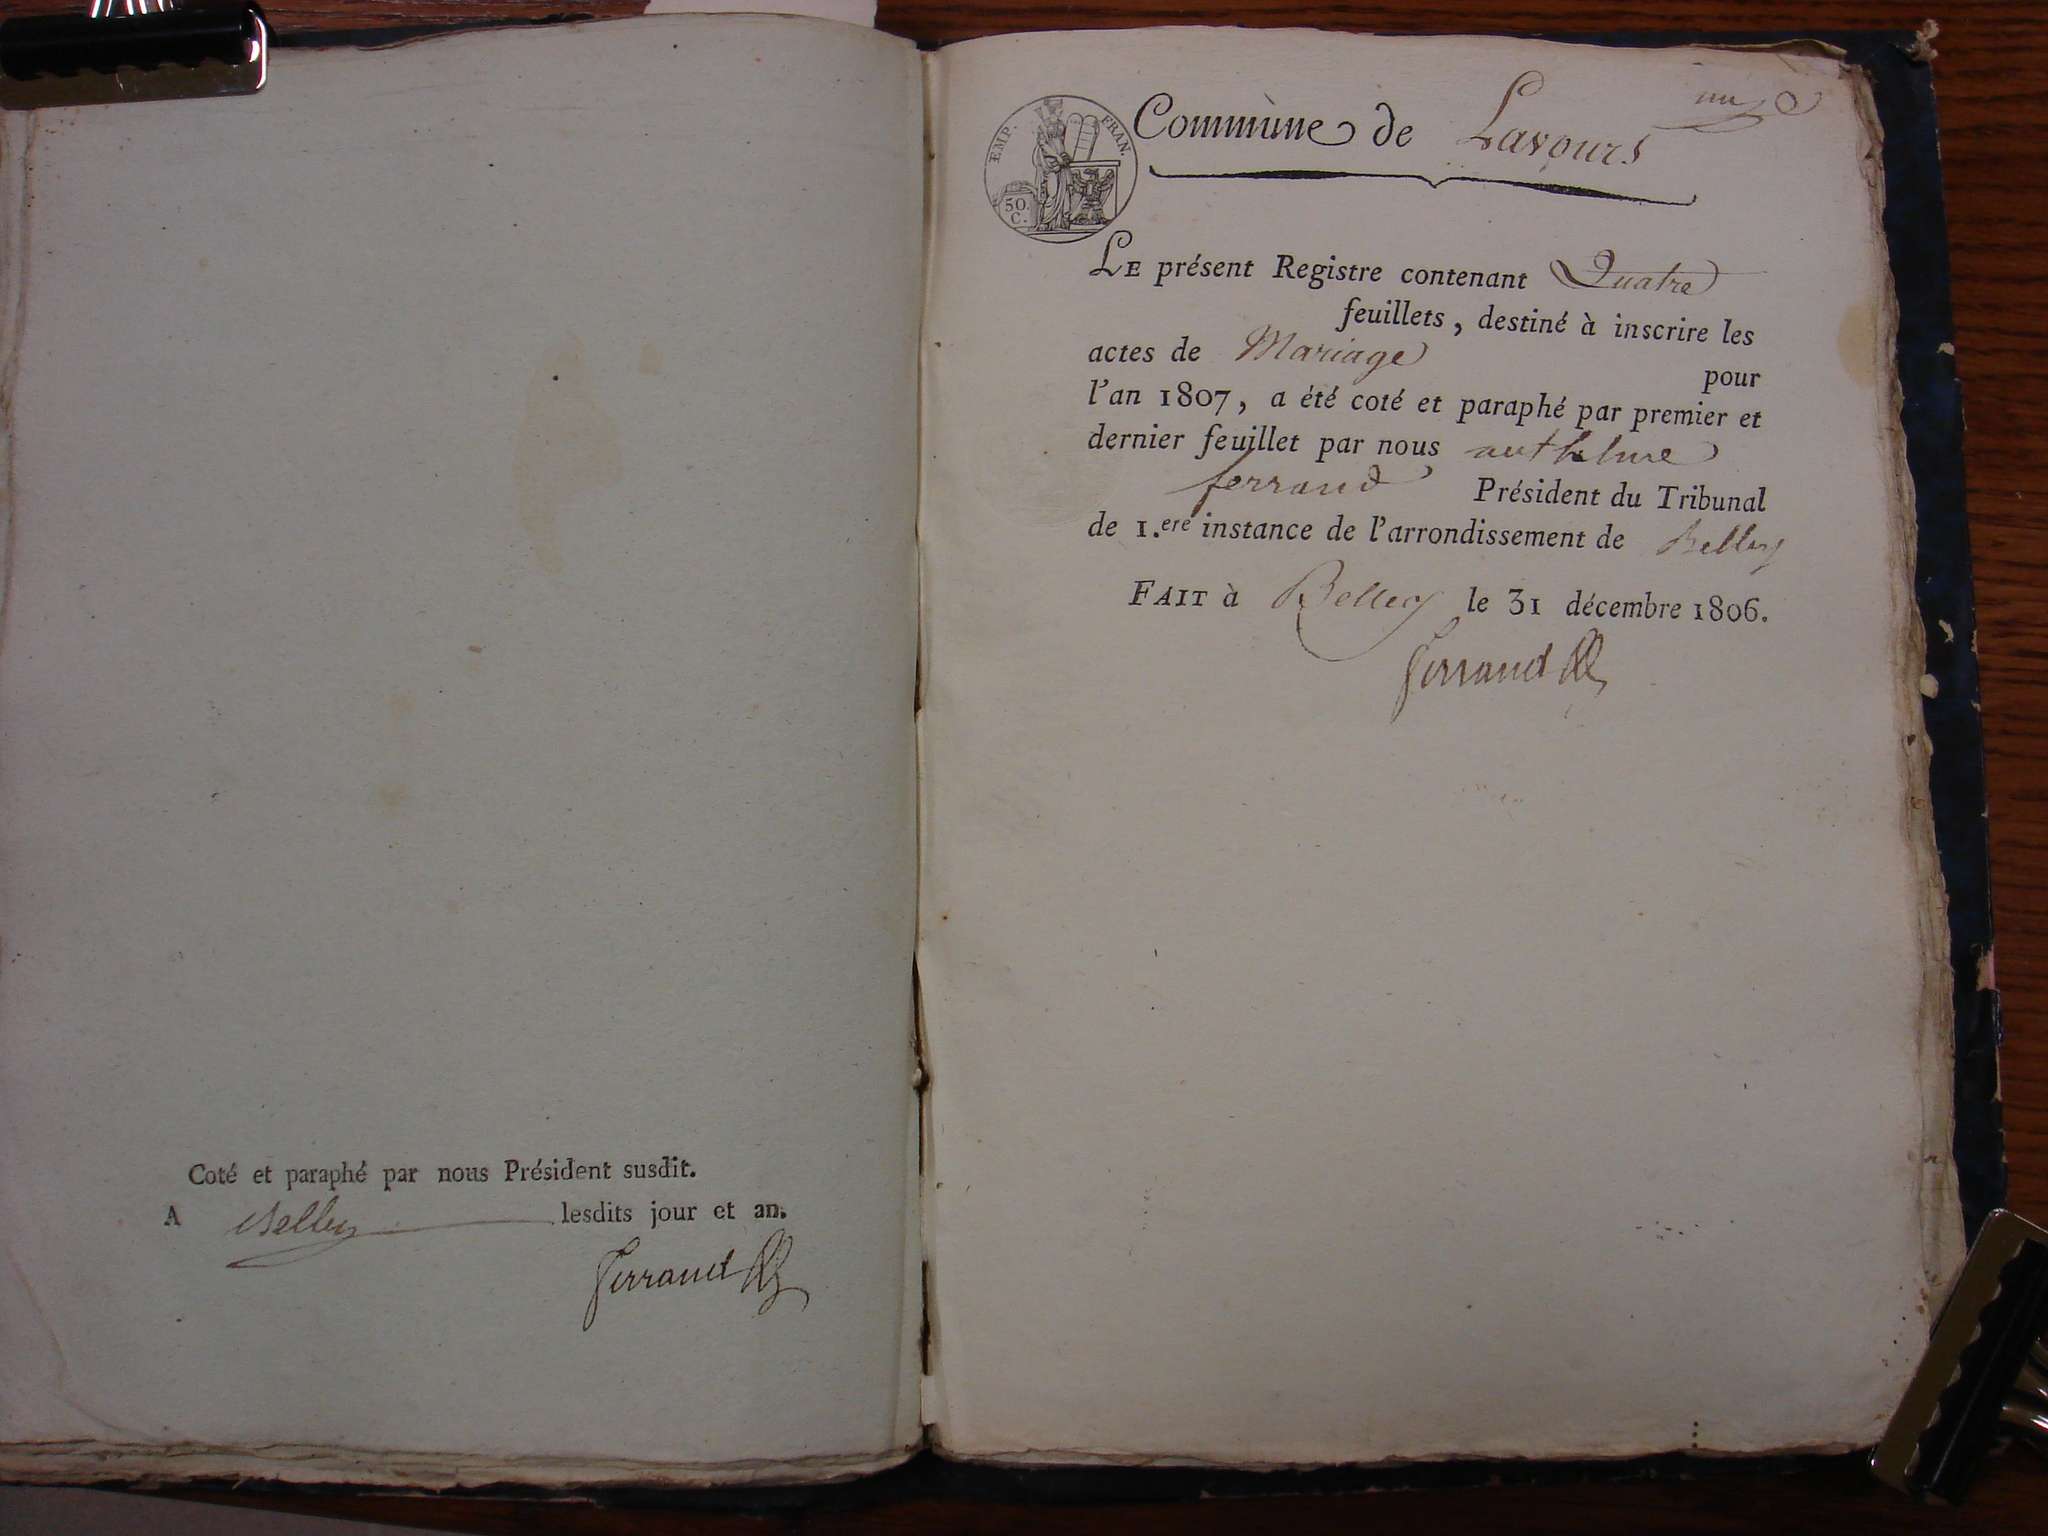 Coté et paraphé par nous Président susdit.
A Belley lesdits jour et an.
Ferrand
EMP. FRAN.
50.
C.
Commune de Lavours
LE présent Registre contenant Quatre
feuillets, destiné à inscrire les
actes de Mariage
pour
l'an 1807, a été coté et paraphé par premier et
dernier feuillet par nous anthelme
ferrand Président du Tribunal
de 1.ere instance de l'arrondissement de Belley
FAIT à Belley le 31 décembre 1806.
Ferrand